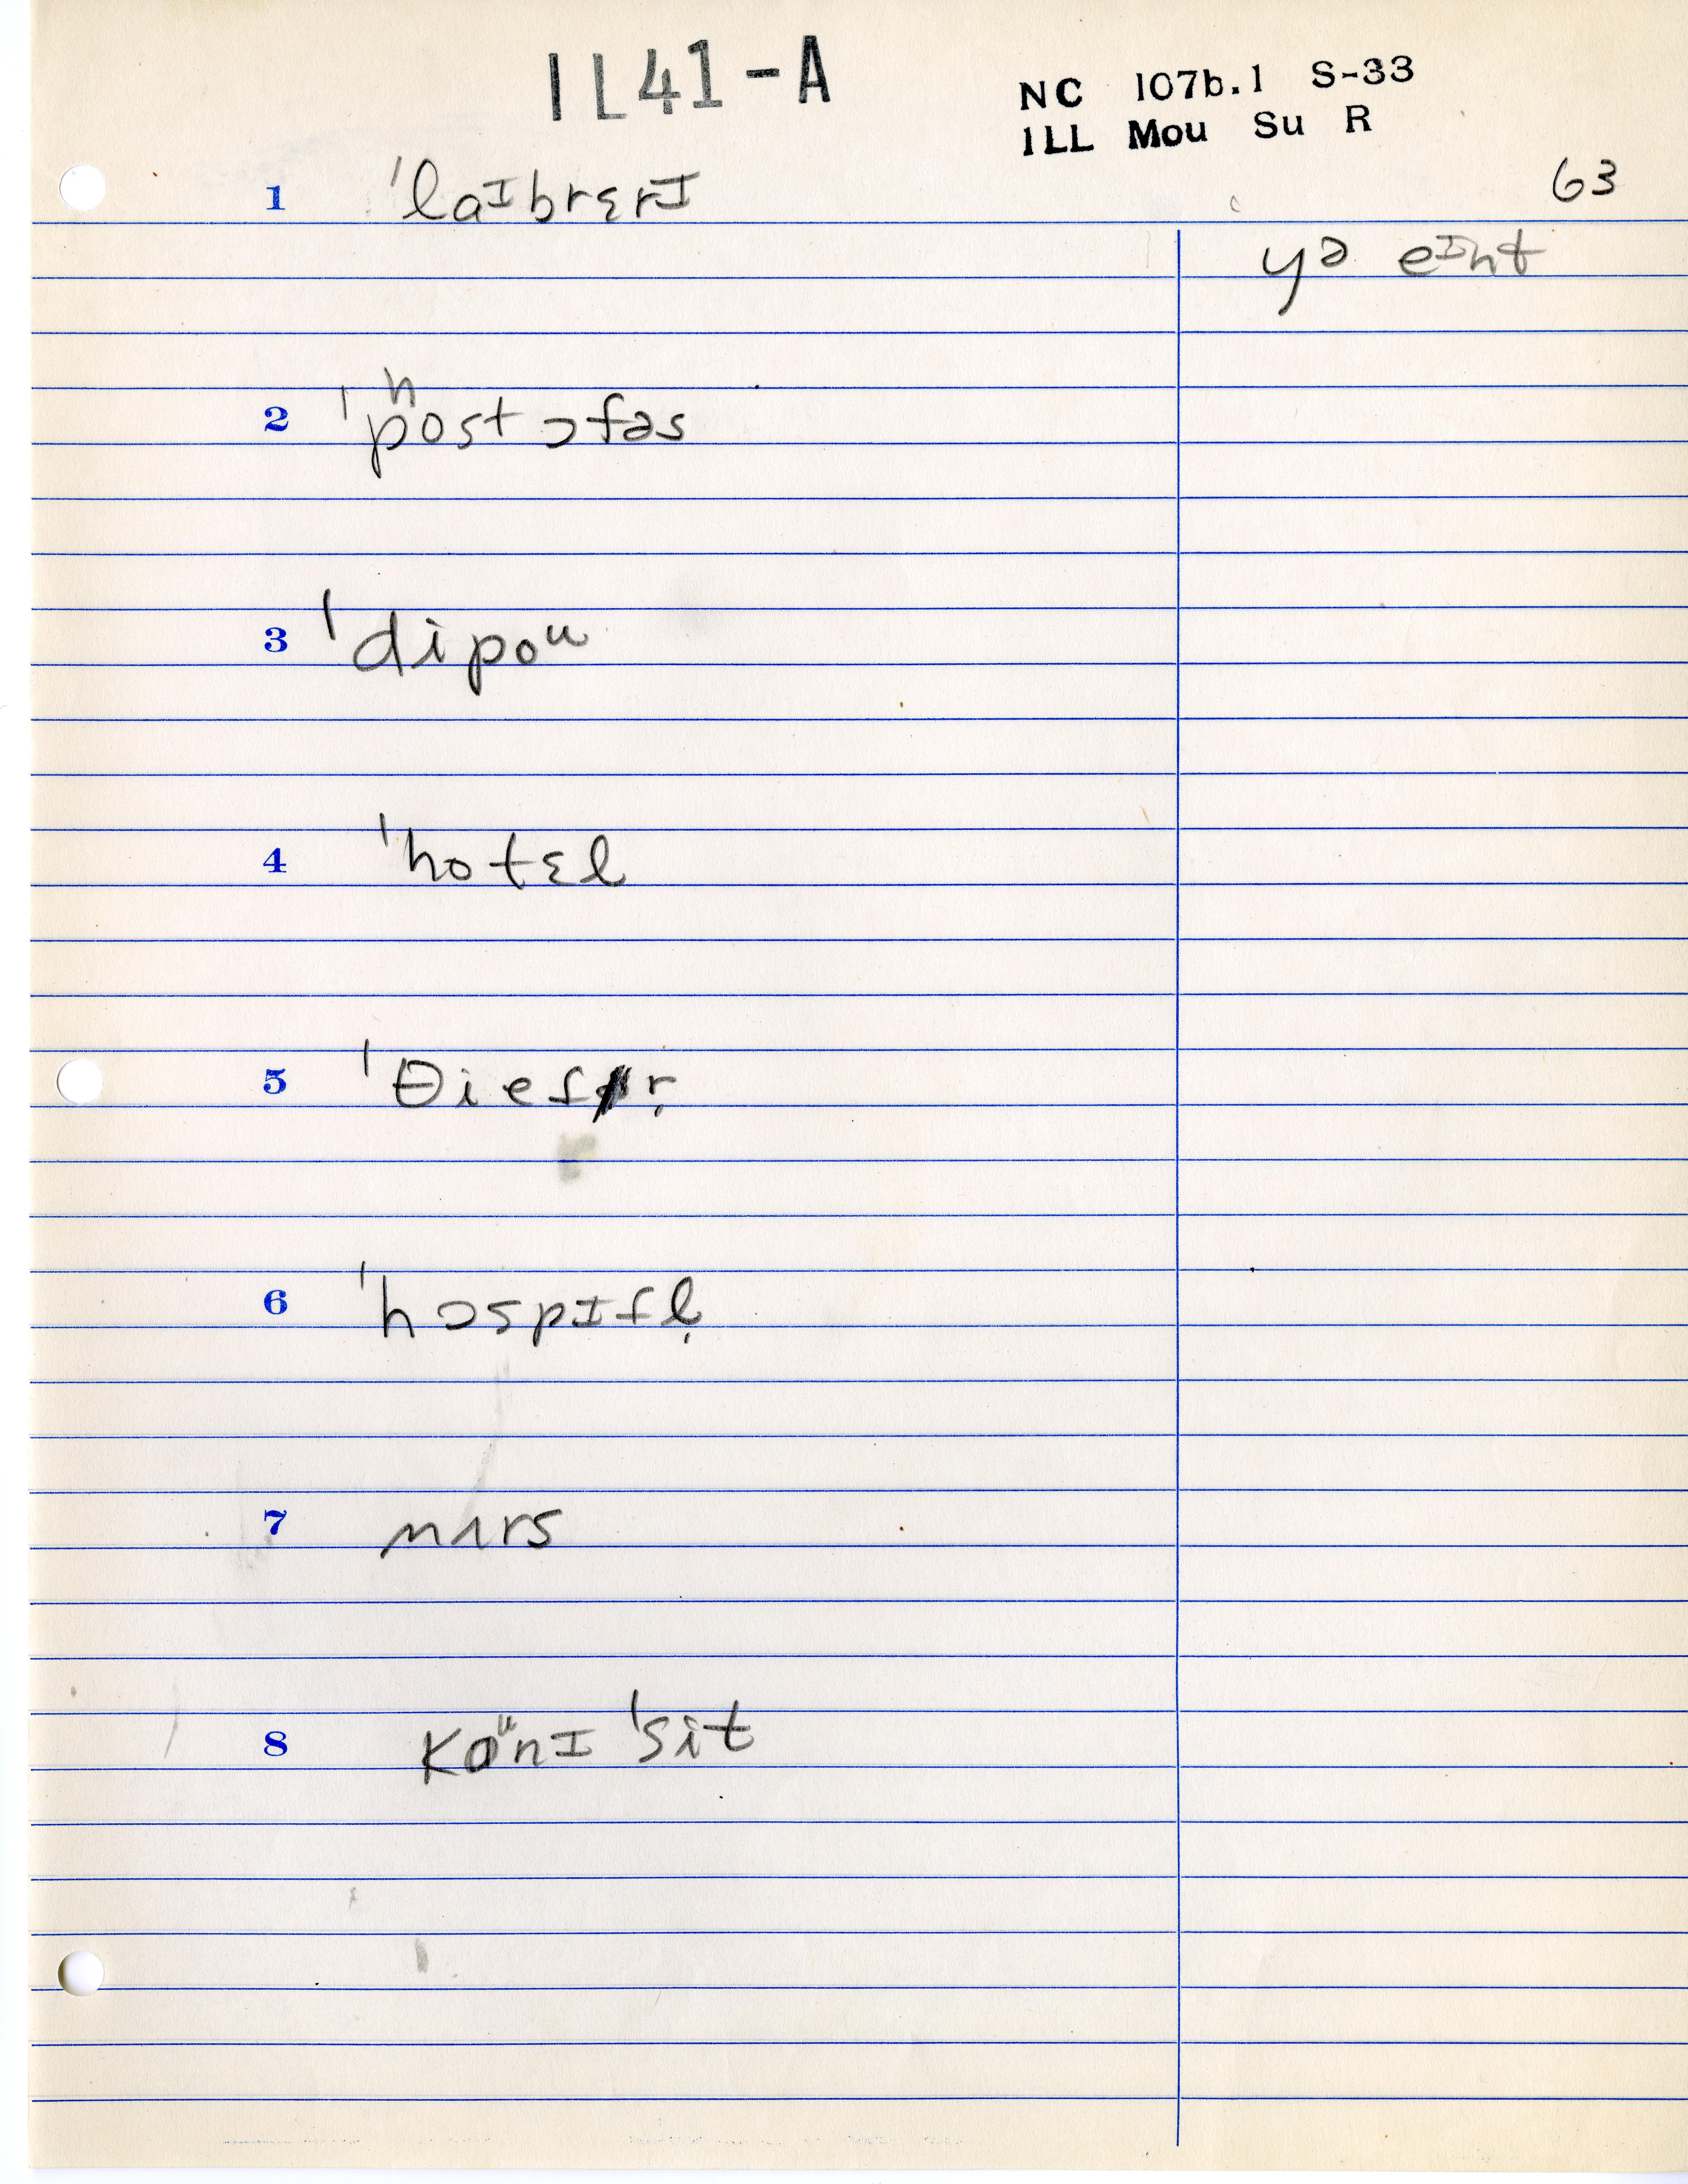 IL41-A
NC 107b.1 S-33
ILL Mou Su R
63
1 ˈlaɪbrɛrɪ
yə eɪnt
2 ˈpʰost ɔfəs
3 ˈdipoᵘ
4 ˈhotɛl
5 ˈθieɾr̩
6 ˈhɔspɪɾl̩
7 nʌrs
8 kaᵘnɪ ˈsit